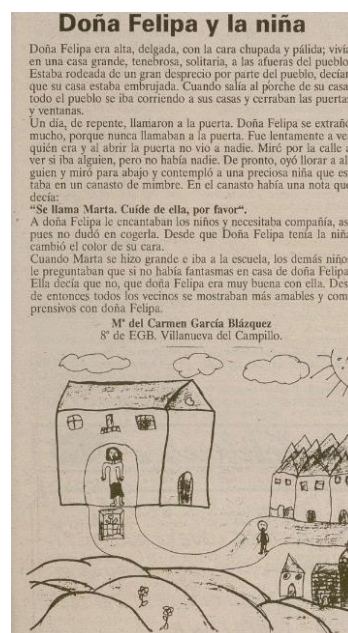 Doña Felipa y la niña
Doña Felipa era alta, delgada, con la cara chupada y pálida; vivía
en una casa grande, tenebrosa, solitaria, a las afueras del pueblo
Estaba rodeada de un gran desprecio por parte del pueblo, decían
que su casa estaba embrujada. Cuando salía al porche de su casa
todo el pueblo se iba corriendo a sus casas y cerraban las puertas
y ventanas.
Un día, de repente, llamaron a la puerta. Doña Felipa se extrañó
mucho, porque nunca llamaban a la puerta. Fue lentamente a ver
quién era y al abrir la puerta no vio a nadie. Miró por la calle a
ver si iba alguien, pero no había nadie. De pronto, oyó llorar a al-
guien y miró para abajo y contempló a una preciosa niña que es-
taba en un canasto de mimbre. En el canasto había una nota que
decía:
“Se llama Marta. Cuíde de ella, por favor“.
A doña Felipa le encantaban los niños y necesitaba compañía, as
pues no dudó en cogerla. Desde que Doña Felipa tenía la niña
cambió el color de su cara.
Cuando Marta se hizo grande e iba a la escuela, los demás niños
le preguntaban que si no había fantasmas en casa de doña Felipa
Ella decía que no, que doña Felipa era muy buena con ella. Des-
de entonces todos los vecinos se mostraban más amables y com-
prensivos con doña Felipa.
Mª del Carmen García Blázquez
8º de EGB. Villanueva del Campillo.